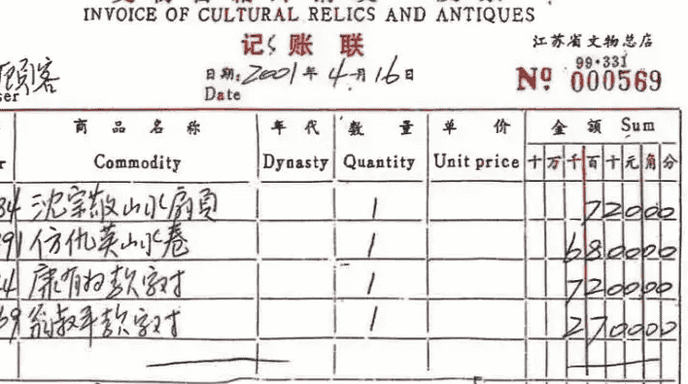 INVOICE OF CULTURAL RELICS AND ANTIQUES
记账联
江苏省文物总店
顾客 日期: 2001年4月16日 99·331
ser Date Nº 000569
商品名称 年代 数量 单价 金额 Sum
Commodity Dynasty Quantity Unit price 十万千百十元角分
84 沈宗敬山水扇页 1 72000
91 仿仇英山水卷 1 680000
4 康有为款字对 1 720000
69 翁叔平款字对 1 270000